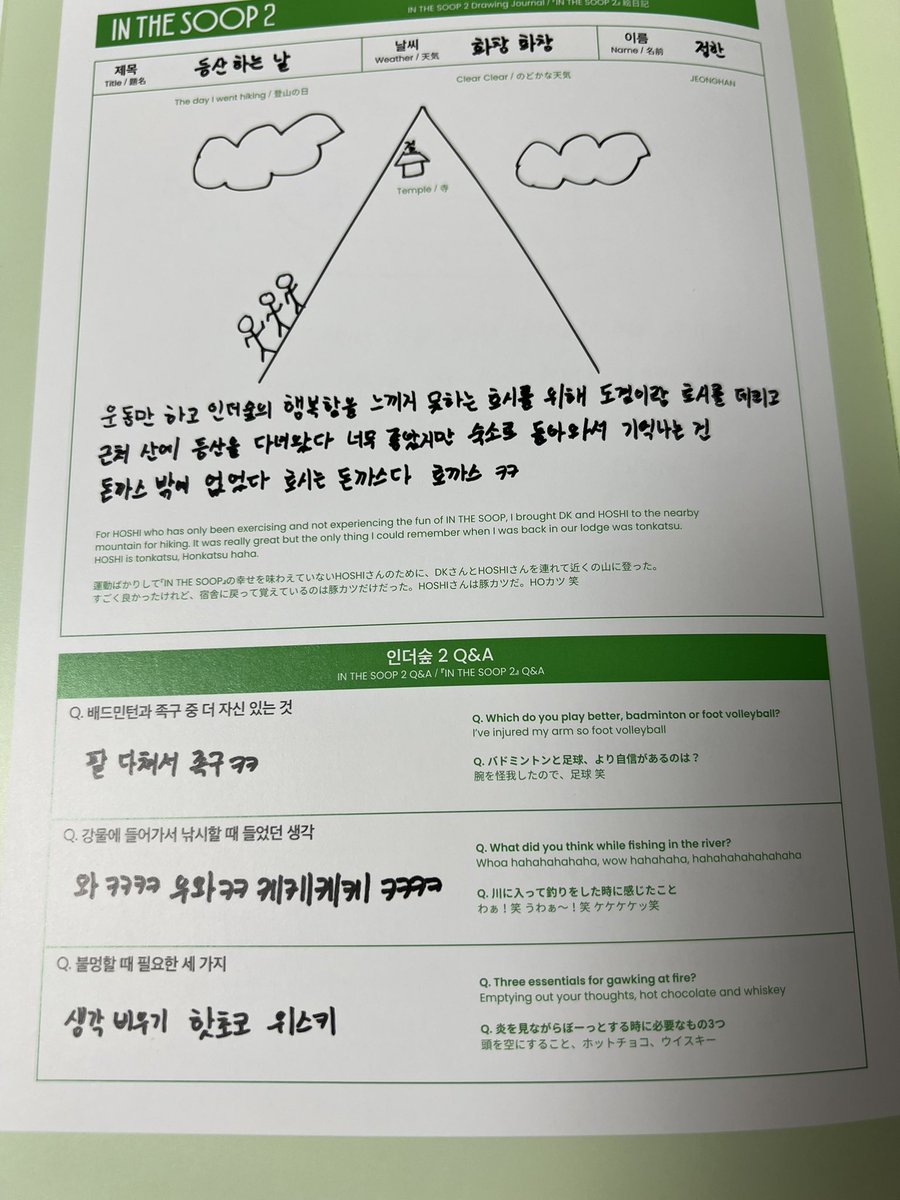 IN THE SOOP 2
IN THE SOOP 2 Drawing Journal / 『IN THE SOOP 2』 絵日記
제목
Title / 題名
등산 하는 날
The day I went hiking / 登山の日
날씨
Weather / 天気
화창 화창
Clear Clear / のどかな天気
이름
Name / 名前
정한
JEONGHAN
절
Temple / 寺
운동만 하고 인더숲의 행복함을 느끼지 못하는 호시를 위해 도겸이랑 호시를 데리고
근처 산에 등산을 다녀왔다 너무 좋았지만 숙소로 돌아와서 기억나는 건
돈까스 밖에 없었다 호시는 돈까스다 호까스 ㅋㅋ
For HOSHI who has only been exercising and not experiencing the fun of IN THE SOOP, I brought DK and HOSHI to the nearby
mountain for hiking. It was really great but the only thing I could remember when I was back in our lodge was tonkatsu.
HOSHI is tonkatsu, Honkatsu haha.
運動ばかりして『IN THE SOOP』の幸せを味わえていないHOSHIさんのために、DKさんとHOSHIさんを連れて近くの山に登った。
すごく良かったけれど、宿舎に戻って覚えているのは豚カツだけだった。HOSHIさんは豚カツだ。HOカツ 笑
인더숲 2 Q&A
IN THE SOOP 2 Q&A / 『IN THE SOOP 2』 Q&A
Q. 배드민턴과 족구 중 더 자신 있는 것
팔 다쳐서 족구 ㅋㅋ
Q. Which do you play better, badminton or foot volleyball?
I've injured my arm so foot volleyball
Q. バドミントンと足球、より自信があるのは？
腕を怪我したので、足球 笑
Q. 강물에 들어가서 낚시할 때 들었던 생각
와 ㅋㅋㅋㅋ 우와ㅋㅋ 케케케케 ㅋㅋㅋㅋ
Q. What did you think while fishing in the river?
Whoa hahahahahaha, wow hahahaha, hahahahahahahaha
Q. 川に入って釣りをした時に感じたこと
わぁ！笑 うわぁ〜！笑 ケケケケッ笑
Q. 불멍할 때 필요한 세 가지
생각 비우기 핫초코 위스키
Q. Three essentials for gawking at fire?
Emptying out your thoughts, hot chocolate and whiskey
Q. 炎を見ながらぼーっとする時に必要なもの3つ
頭を空にすること、ホットチョコ、ウイスキー